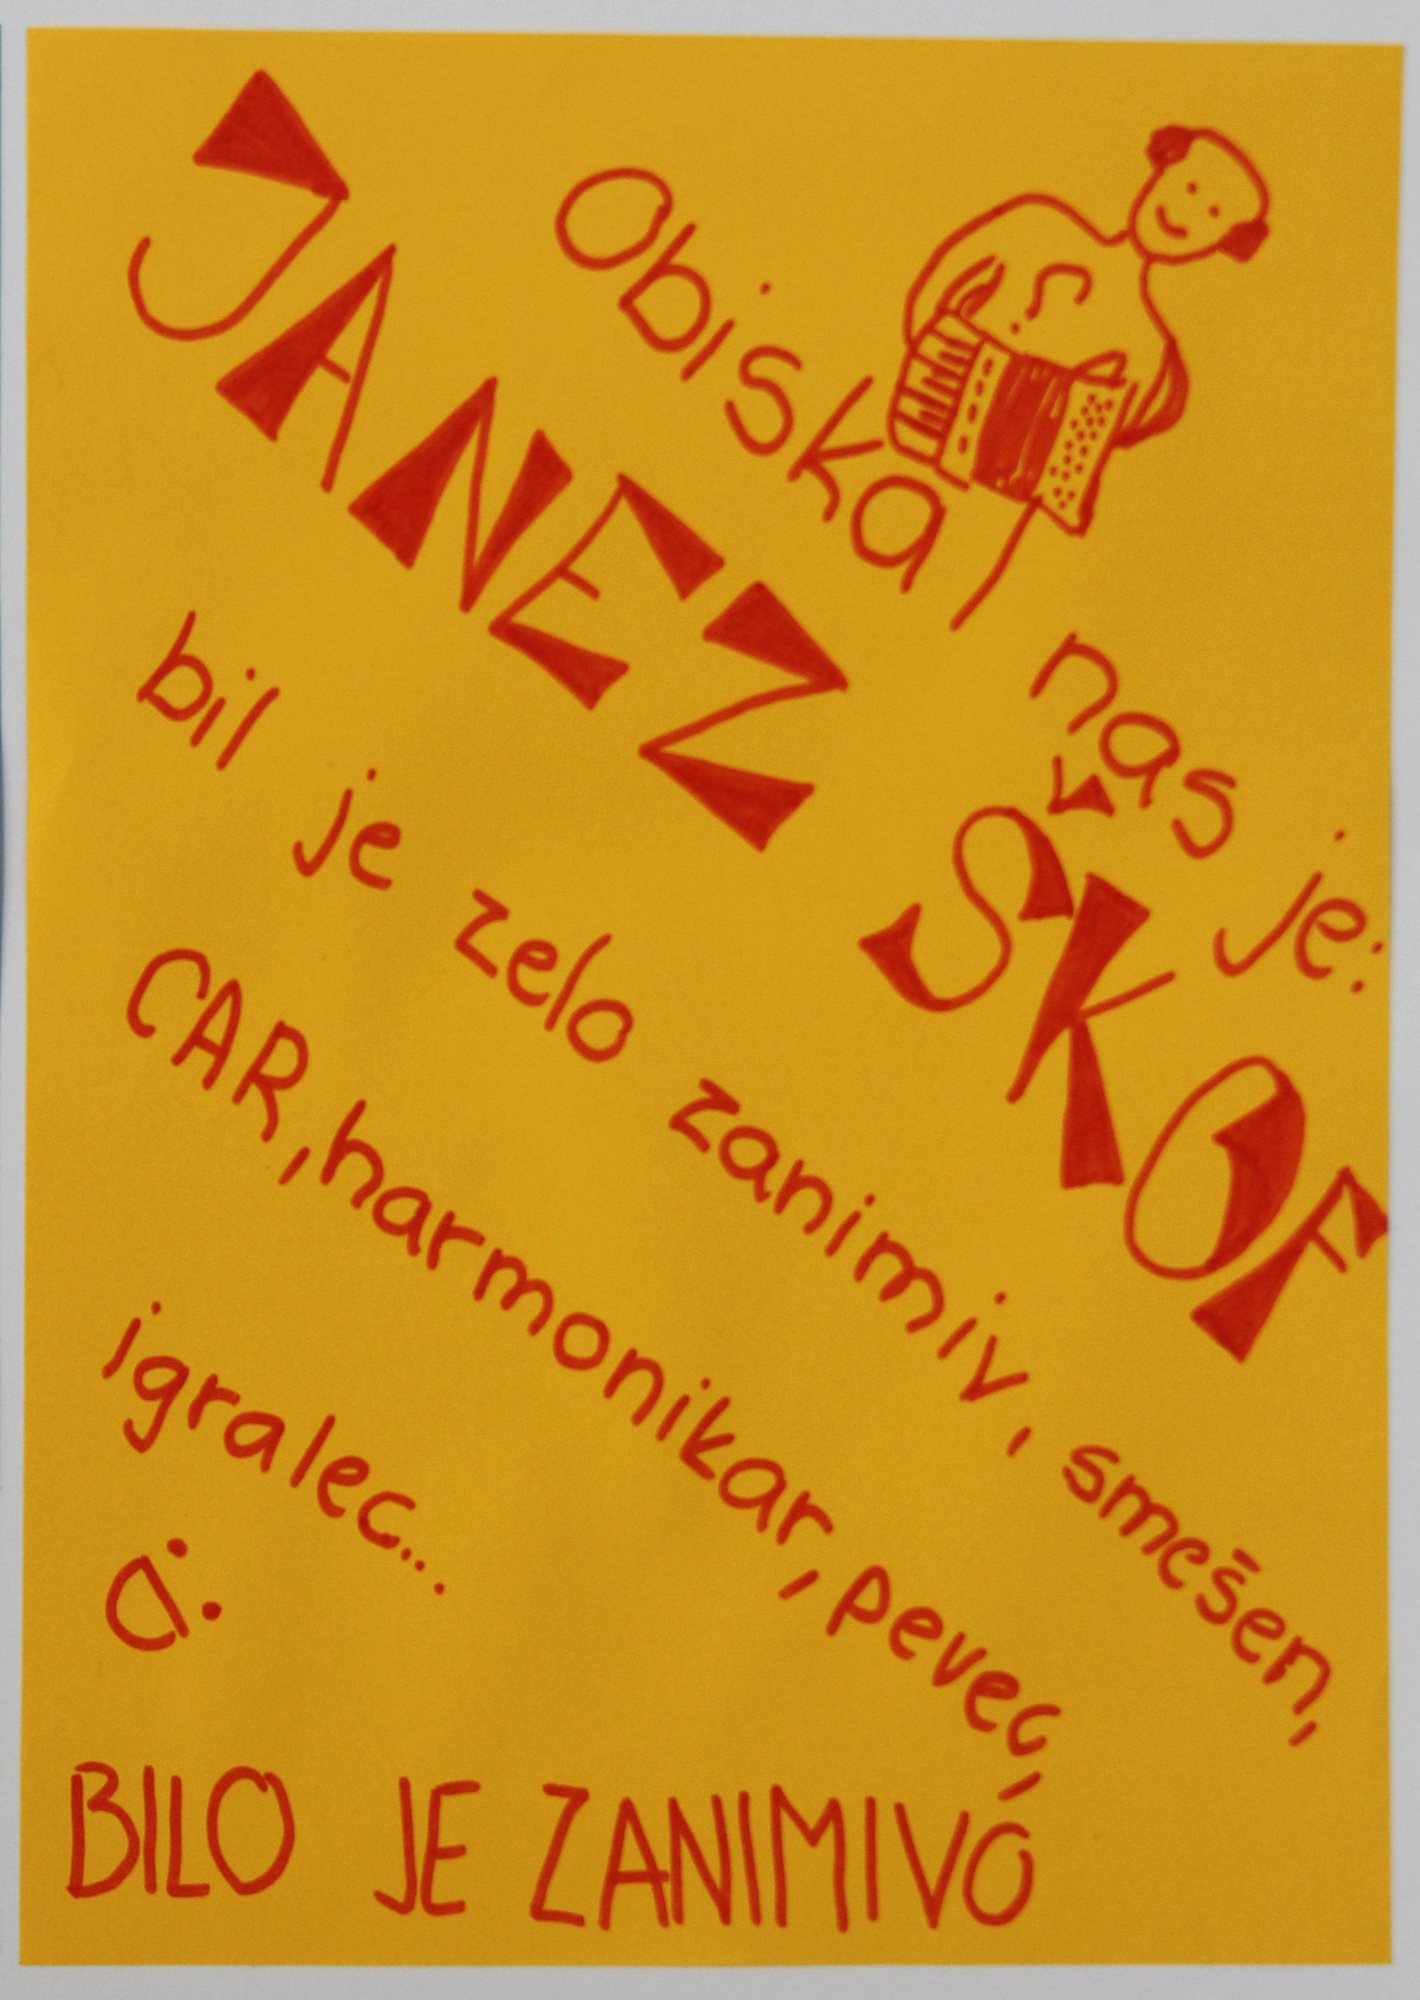 Obiskal nas je:
JANEZ ŠKOF
bil je zelo zanimiv, smešen,
CAR, harmonikar, pevec,
igralec...
:D
BILO JE ZANIMIVO